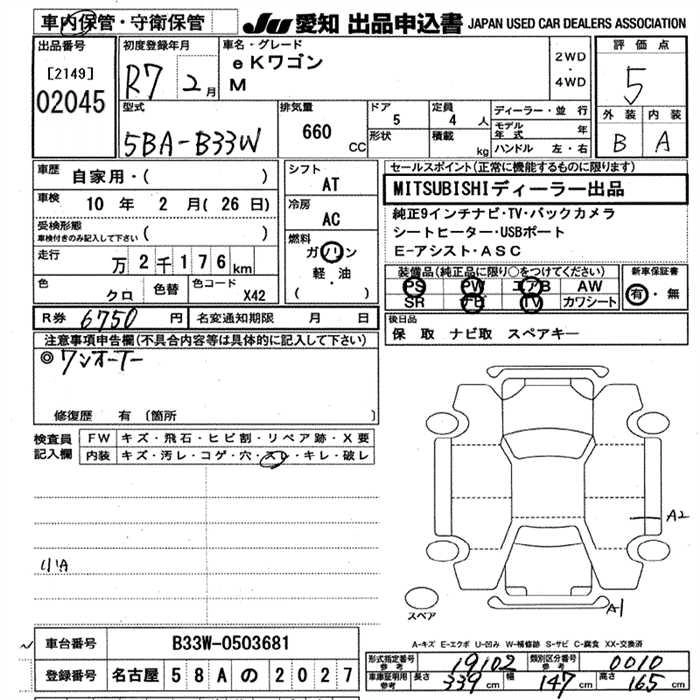 車内保管・守衛保管
JU 愛知 出品申込書 JAPAN USED CAR DEALERS ASSOCIATION
出品番号
[2149]
02045
初度登録年月
R7 2月
車名・グレード
eKワゴン
M
2WD
・
4WD
評価点
5
外装 内装
B A
型式
5BA-B33W
排気量
660
CC
ドア
5
形状
定員
4 人
積載
kg
ディーラー・並行
モデル年式 年
ハンドル 左・右
車歴
自家用・( )
車検 10年 2月(26日)
受検形態
車検付きのみ記入して下さい ( )
走行
万2千176km
色
クロ
色替
色コード
X42
シフト
AT
冷房
AC
燃料
ガソリン
軽・油
( )
セールスポイント(正常に機能するものに限ります)
MITSUBISHIディーラー出品
純正9インチナビ・TV・バックカメラ
シートヒーター・USBポート
E-アシスト・ASC
装備品(純正品に限り○をつけてください)
PS PW エアB AW
SR ナビ TV カワシート
新車保証書
有・無
R券 6750円
名変通知期限 月 日
後日品
保 取 ナビ取 スペアキー
注意事項申告欄(不具合内容等は具体的に記入して下さい)
◎ワンオーナー
修復歴 有 〔箇所 〕
検査員記入欄
FW キズ・飛石・ヒビ割・リペア跡・X要
内装 キズ・汚レ・コゲ・穴・スレ・キレ・破レ
A2
小A
スペア
A1
A-キズ E-エクボ U-凹み W-補修跡 S-サビ C-腐食 XX-交換済
車台番号 B33W-0503681
登録番号 名古屋 58A の 2027
形式指定番号
参考
19102
類別区分番号
参考
0010
車庫証明用
参考
長さ 339cm 幅 147cm 高さ 165cm